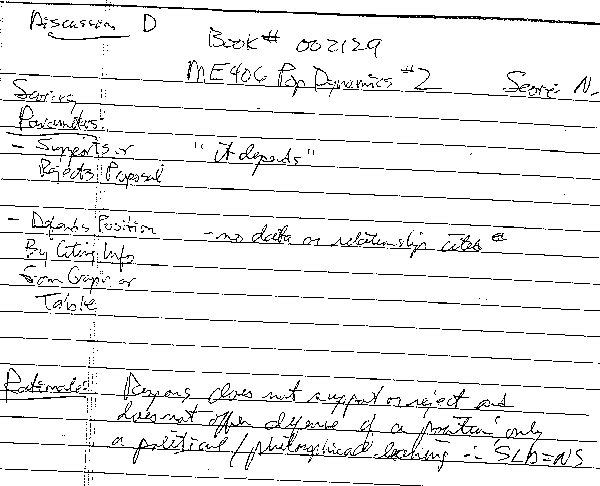 Discussion D
Book # 002129
ME406 Pop Dynamics #2 Score: N
Scoring
Parameters:
- Supports or "it depends"
Rejects Proposal
- Defends Position - no data or relationship cited
By Citing Info
From Graph or
Table
Rationale: Response does not support or reject and
does not offer defense of a position only
a political / philosophical leaning ∴ SLD=NS